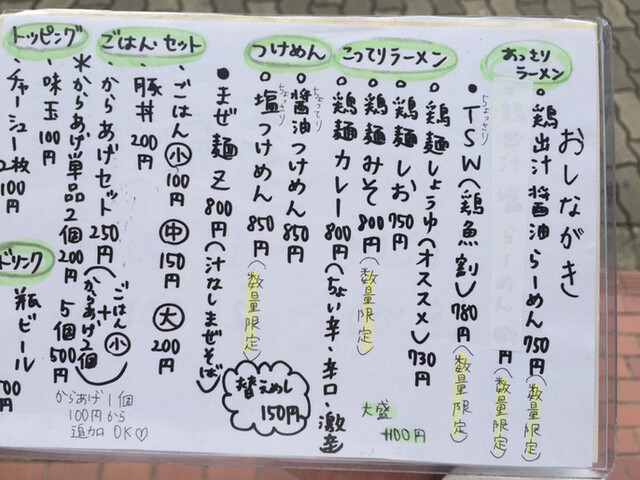 おしながき
あっさり
ラーメン
鶏出汁醤油らーめん 750円(数量限定)
円(数量限定)
ちょっさり
・TSW(鶏魚割)780円(数量限定)
こってりラーメン
鶏麺しょうゆ(オススメ)730円
鶏麺しお 750円
鶏麺みそ 800円(数量限定)
鶏麺カレー 800円(ちょい辛・辛口・激辛)
大盛
+100円
つけめん
ちょってり
醤油つけめん 850円
ちょっさり
塩つけめん 850円(数量限定)
替えめし
150円
・まぜ麺Z 800円(汁なしまぜそば)
ごはん・セット
・ごはん 小 100円 中 150円 大 200円
・豚丼 200円
・からあげセット 250円(ごはん小+からあげ2個)
*からあげ単品 2個 200円 5個 500円
からあげ1個
100円から
追加OK♡
トッピング
・味玉 100円
・チャーシュー 2枚 100円
ドリンク
瓶ビール
00円